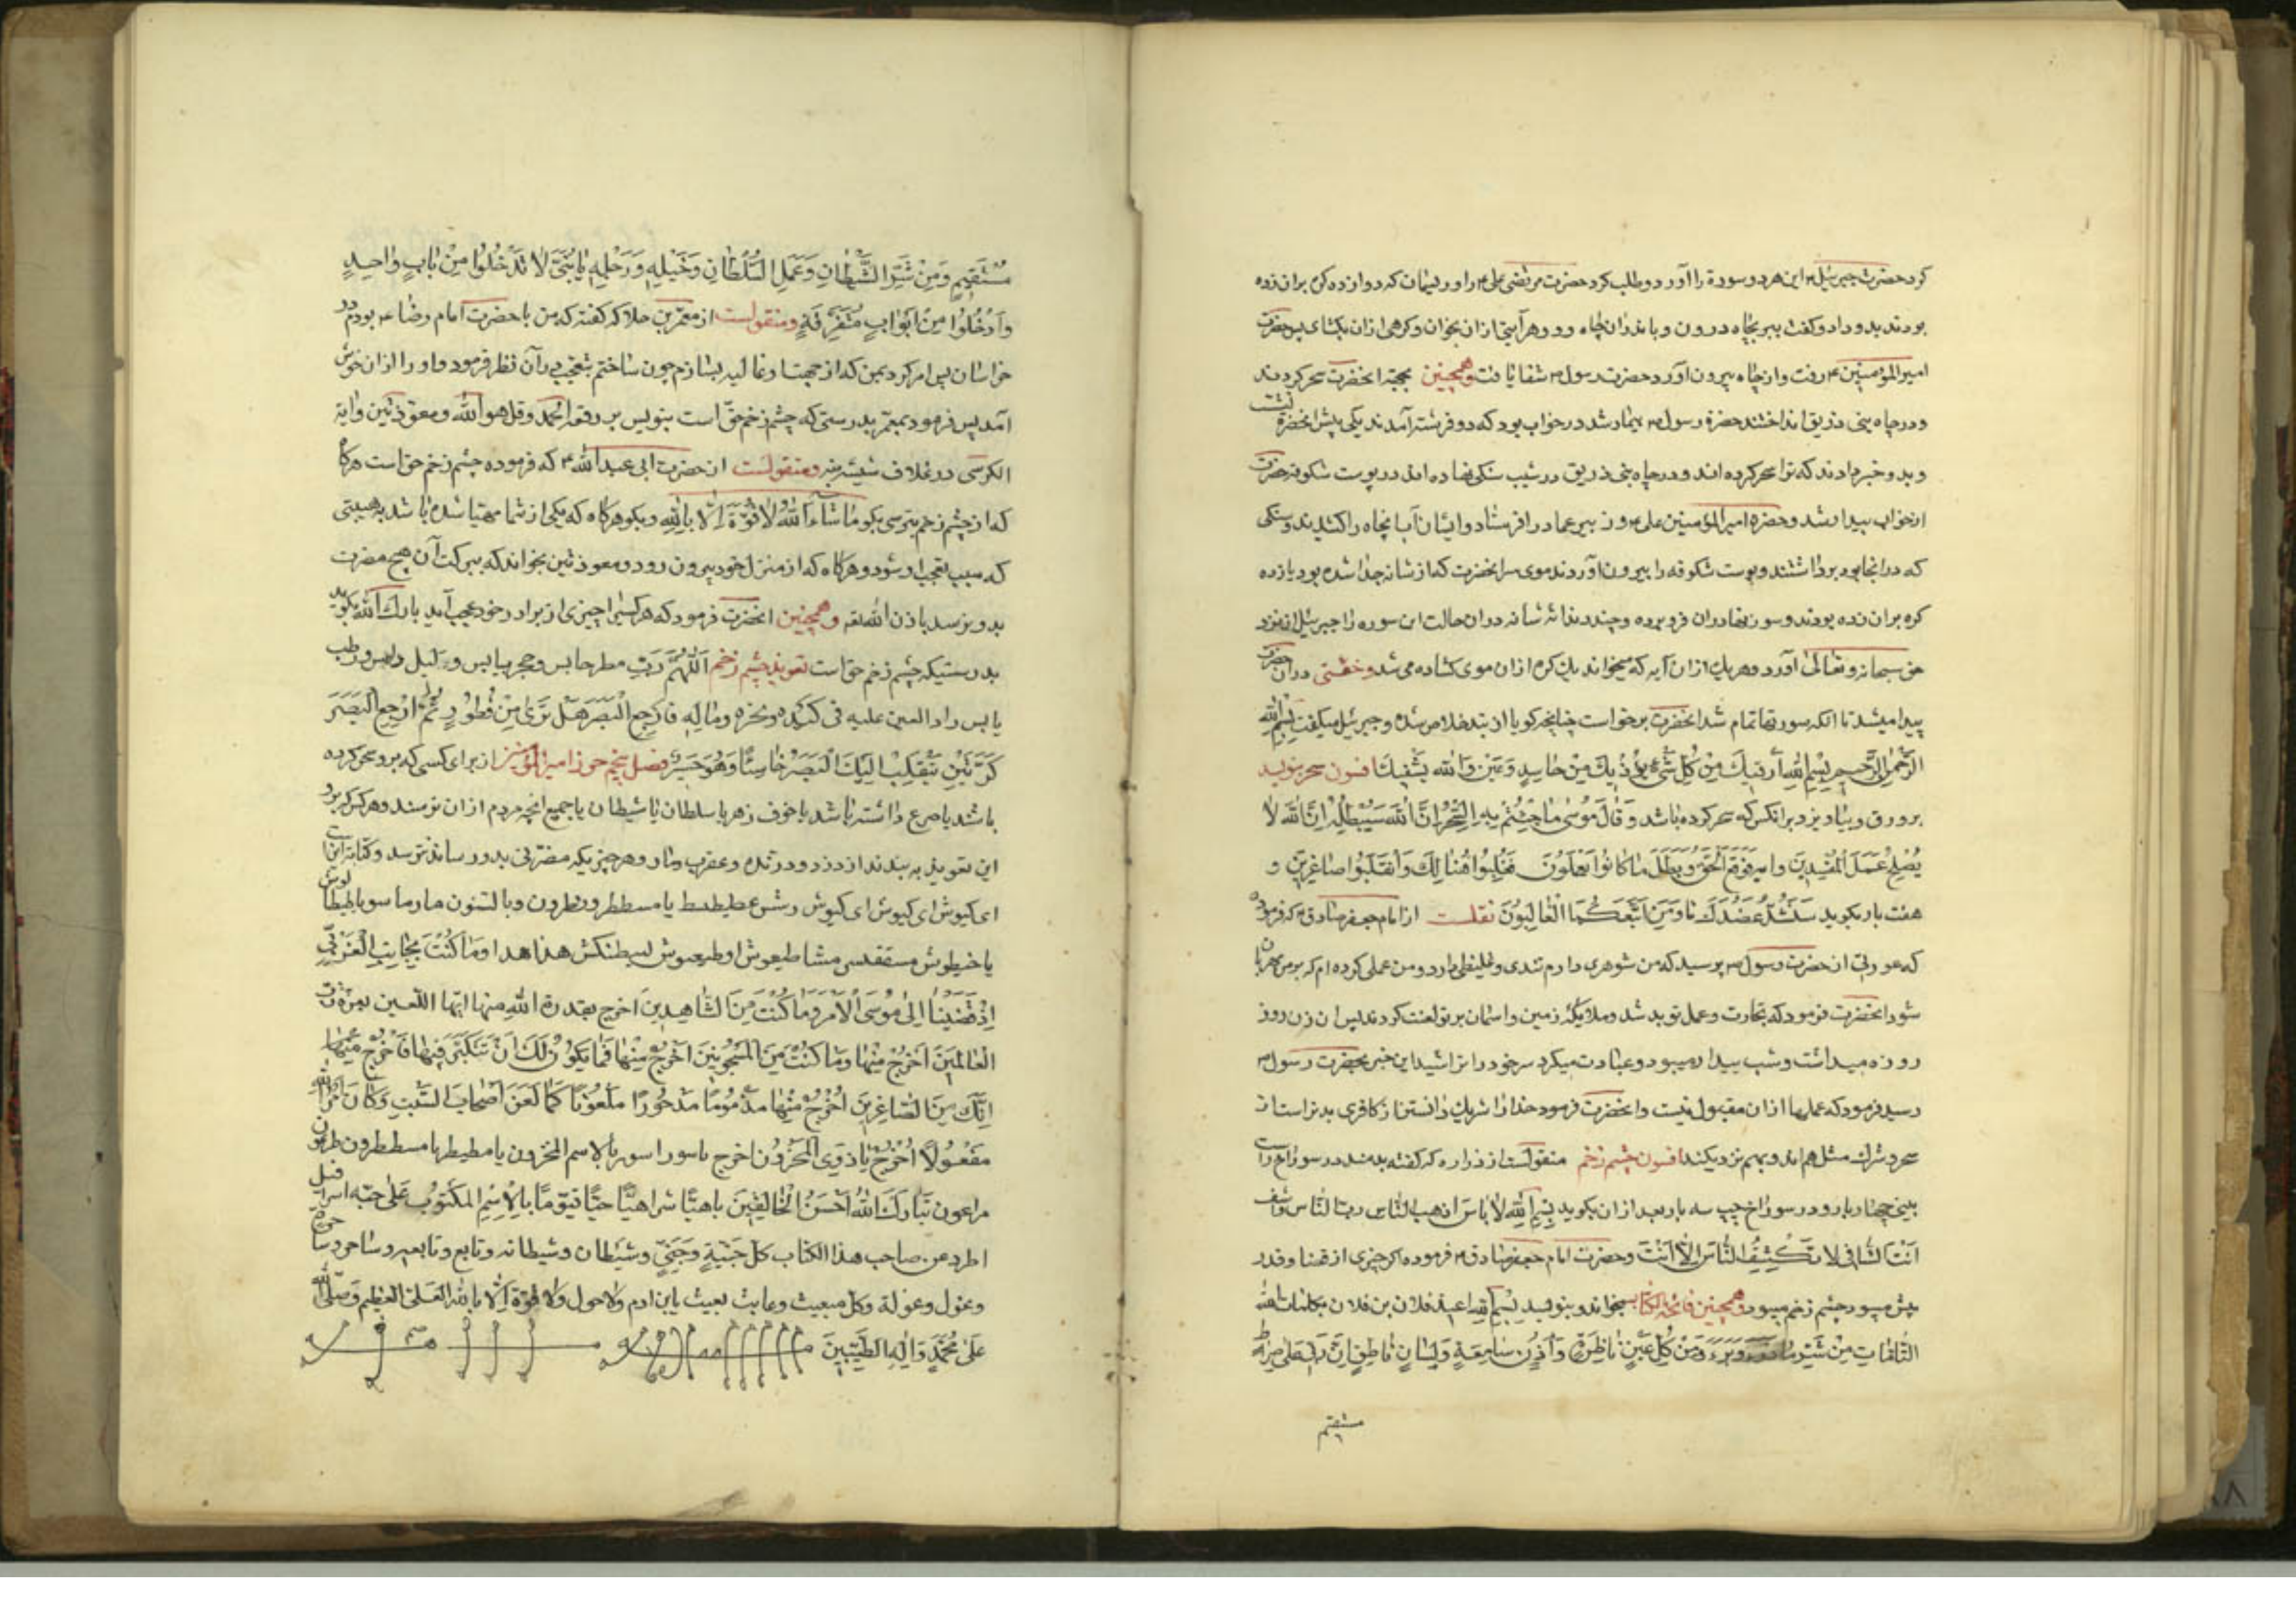 کرد حضرت جبرئیل ۴ این هر دو سورة را آورد و طلب کرد حضرت مرتضی علی ۴ را و ریسمان که دوازده کره بران زده
بودند بدو داد و کفت ببر بچاه درون و بان چاه رو و هر آیتی ازان بخوان و کرهی ازان بکشای پس حضرت
امیر المؤمنین ۴ رفت و از چاه بیرون آورد و حضرت رسول ۴ شفا یافت و همچنین بجهة انحضرت سحر کردند
و در چاه بنی ذریق انداختند حضرة رسول ۴ بیمار شد در خواب بود که دو فرشته آمدند یکی پیش انحضرة نشست
و بدو خبر دادند که ترا سحر کرده اند و در چاه بنی ذریق در شیب سنکی نهاده اند در پوست شکوفه حضرت
از خواب بیدار شد و حضرة امیر المؤمنین علی ۴ و زبیر و عمار را فرستاد و ایشان آب انچاه را کشیدند و سنکی
که در انجا بود برداشتند و پوست شکوفه را بیرون آوردند موی سر انحضرت که از شانه جدا شده بود یازده
کره بران زده بودند و سوزنها دران فرو برده و چند دندانه شانه دران حالت این سوره را جبرئیل از نزد
حق سبحانه و تعالی آورد و هر یک ازان آیه که میخواند یک کره ازان موی کشاده می شد و خفتی دران حضرت
پیدا میشد تا انکه سورتها تمام شد انحضرت برخواست چنانچه کویا از بند خلاص شده و جبرئیل میکفت بِسْمِ اللهِ
الرَّحْمٰنِ الرَّحِيمِ بِسْمِ اللهِ اَرْقِيكَ مِنْ كُلِّ شَيْءٍ يُؤْذِيكَ مِنْ حَاسِدٍ وَعَيْنٍ وَالله يَشْفِيكَ افسون سحر بنویسد
بر ورق و بیاویزد بر انکس که سحر کرده باشد وَ قَالَ مُوسٰى مَا جِئْتُمْ بِهِ السِّحْرُ اِنَّ اللهَ سَيُبْطِلُهُ اِنَّ اللهَ لاٰ
يُصْلِحُ عَمَلَ الْمُفْسِدِينَ فَوَقَعَ الْحَقُّ وَبَطَلَ مَا كَانُوا يَعْمَلُونَ فَغُلِبُوا هُنَالِكَ وَانْقَلَبُوا صَاغِرِينَ و
هفت بار بکوید سَنَشُدُّ عَضُدَكَ وَمَنِ اتَّبَعَكُمَا الْغَالِبُونَ نقلست از امام جعفر صادق ۴ که فرموده
که عورتی از حضرت رسول ۴ پرسید که من شوهری دارم تندی و غلیظی دارد و من عملی کرده ام که بر من مهربان
شود انحضرت فرمود که تجارت و عمل تو بد شد و ملایکه زمین و اسمان بر تو لعنت کردند پس ان زن روز
روزه میداشت و شب بیدار میبود و عبادت میکرد سر خود را تراشید این خبر بحضرت رسول ۴
رسید فرمود که عملها ازان مقبول نیست و انحضرت فرمود خدا را شریک دانستن از کافری بدتر است از
سحر و شرک مثل هم اند و بهم نزدیکند افسون چشم زخم منقولست از زراره که کفته بدمند در سوراخ راست
بینی چهار بار و در سوراخ چپ سه بار بعد ازان بکوید بِسْمِ اللهِ لاٰ بَاسَ اذهب الباس رب الناس واشف
اَنْتَ الشَّافِى لاٰ يَكْشِفُ الْبَاسَ اِلاّٰ اَنْتَ و حضرت امام جعفر صادق ۴ فرموده اکر چیزی از قضا و قدر
پیش میبود چشم زخم میبود و همچنین فاتحة الکتاب بخواند و بنویسد بِسْمِ اللهِ اعیذ فلان بن فلان بکلمات الله
التَّامَّاتِ مِنْ شَرِّ مَا ذَرَءَ وَبَرَءَ وَمِنْ كُلِّ عَيْنٍ نَاظِرَةٍ وَاُذُنٍ سَامِعَةٍ وَلِسَانٍ نَاطِقٍ اِنَّ رَبِّى عَلٰى صِرَاطٍ
مستقیم
مُسْتَقِيمٍ وَمِنْ شَرِّ الشَّيْطَانِ وَعَمَلِ الشَّيْطَانِ وَخَيْلِهِ وَرَجْلِهِ يَا بَنِىَّ لاٰ تَدْخُلُوا مِنْ بَابٍ وَاحِدٍ
وَادْخُلُوا مِنْ اَبْوَابٍ مُتَفَرِّقَةٍ و منقولست از معمر بن خلاد که کفته که من با حضرت امام رضا ۴ بودم در
خراسان پس امر کرد بمن که از جهت او غالیه بسازم چون ساختم بتعجب در آن نظر فرمود و او را ازان خوش
آمد پس فرمود بمعمر بدرستی که چشم زخم حق است بنویس بر رقعه الحمد و قل هو الله و معوذتین و ایة
الکرسی در غلاف شیشه بنه و منقولست از حضرت ابی عبد الله ۴ که فرموده چشم زخم حق است هرکاه
که از چشم زخم بترسی بکو مَا شَاءَ اللهُ لاٰ قُوَّةَ اِلاّٰ بِاللهِ و بکو هرکاه که یکی از شما مهیا شده باشد بهیئتی
که سبب تعجب او شود و هرکاه که از منزل خود بیرون رود و معوذتین بخواند که ببرکت آن هیچ مضرت
بدو نرسد باذن الله تع و همچنین انحضرت فرمود که هر کسی را چیزی از برادر خود عجب آید بارك الله بکوید
بدرستیکه چشم زخم حق است تعویذ چشم زخم اَللّٰهُمَّ رَبِّ مطر حابس و حجر یابس و لیل دامس و رطب
یابس راد العین علیه فی کبده و نحره و ماله فَارْجِعِ الْبَصَرَ هَلْ تَرٰى مِنْ فُطُورٍ ثُمَّ ارْجِعِ الْبَصَرَ
كَرَّتَيْنِ يَنْقَلِبْ اِلَيْكَ الْبَصَرُ خَاسِئًا وَهُوَ حَسِيرٌ فصل پنجم حرز امیر المؤمنین از برای کسی که برو سحر کرده
باشند یا صرع داشته باشد یا خوف زهر یا سلطان یا شیطان یا جمیع انچه مردم ازان ترسند و هر کس که برو
این تعویذ به بندند از دزد و درنده و عقرب و مار و هر چیزیکه مضرتی بدو رساند نترسد و کتابت اینست
ای کنوش ای کنوش ای کنوش رشس عطیطط یا مسططرون قرون وبالسنون
هذا هذا وَمَا كُنْتَ بِجَانِبِ الْغَرْبِىِّ
اِذْ قَضَيْنَا اِلٰى مُوسَى الْاَمْرَ وَمَا كُنْتَ مِنَ الشَّاهِدِينَ اخرج بقدرة الله منها ایها اللعین بعزة رب
الْعَالَمِينَ اُخْرُجْ مِنْهَا وَمَا كُنْتَ مِنَ الْمَسْجُونِينَ اُخْرُجْ مِنْهَا فَمَا يَكُونُ لَكَ اَنْ تَتَكَبَّرَ فِيهَا فَاخْرُجْ مِنْهَا
اِنَّكَ مِنَ الصَّاغِرِينَ اُخْرُجْ مِنْهَا مَذْمُومًا مَدْحُورًا مَلْعُونًا كَمَا لَعَنَ اَصْحَابَ السَّبْتِ وَكَانَ اَمْرُ اللهِ
مَفْعُولاً اُخْرُجْ يَا ذَوِى الْمَحْزُونِ اخرج یا سورا سور بالاسم المخزون یا مططرون
مراعون تَبَارَكَ اللهُ اَحْسَنُ الْخَالِقِينَ یا هیا شراهیا حیا قیوما بِالْاِسْمِ الْمَكْتُوبِ عَلٰى جبهه اسرافیل
اطرد عن صاحب هذا الکتاب کل جنیة وجنی وشیطان وشیطانه وتابع وتابعه وساحر وساحرة
وغول وغولة وکل متعبث وعابث یعبث بابن ادم ولا حول ولا قوة اِلاّٰ بِاللهِ الْعَلِىِّ الْعَظِيمِ وَصَلَّى اللهُ
عَلٰى مُحَمَّدٍ وَاٰلِهِ الطَّيِّبِينَ